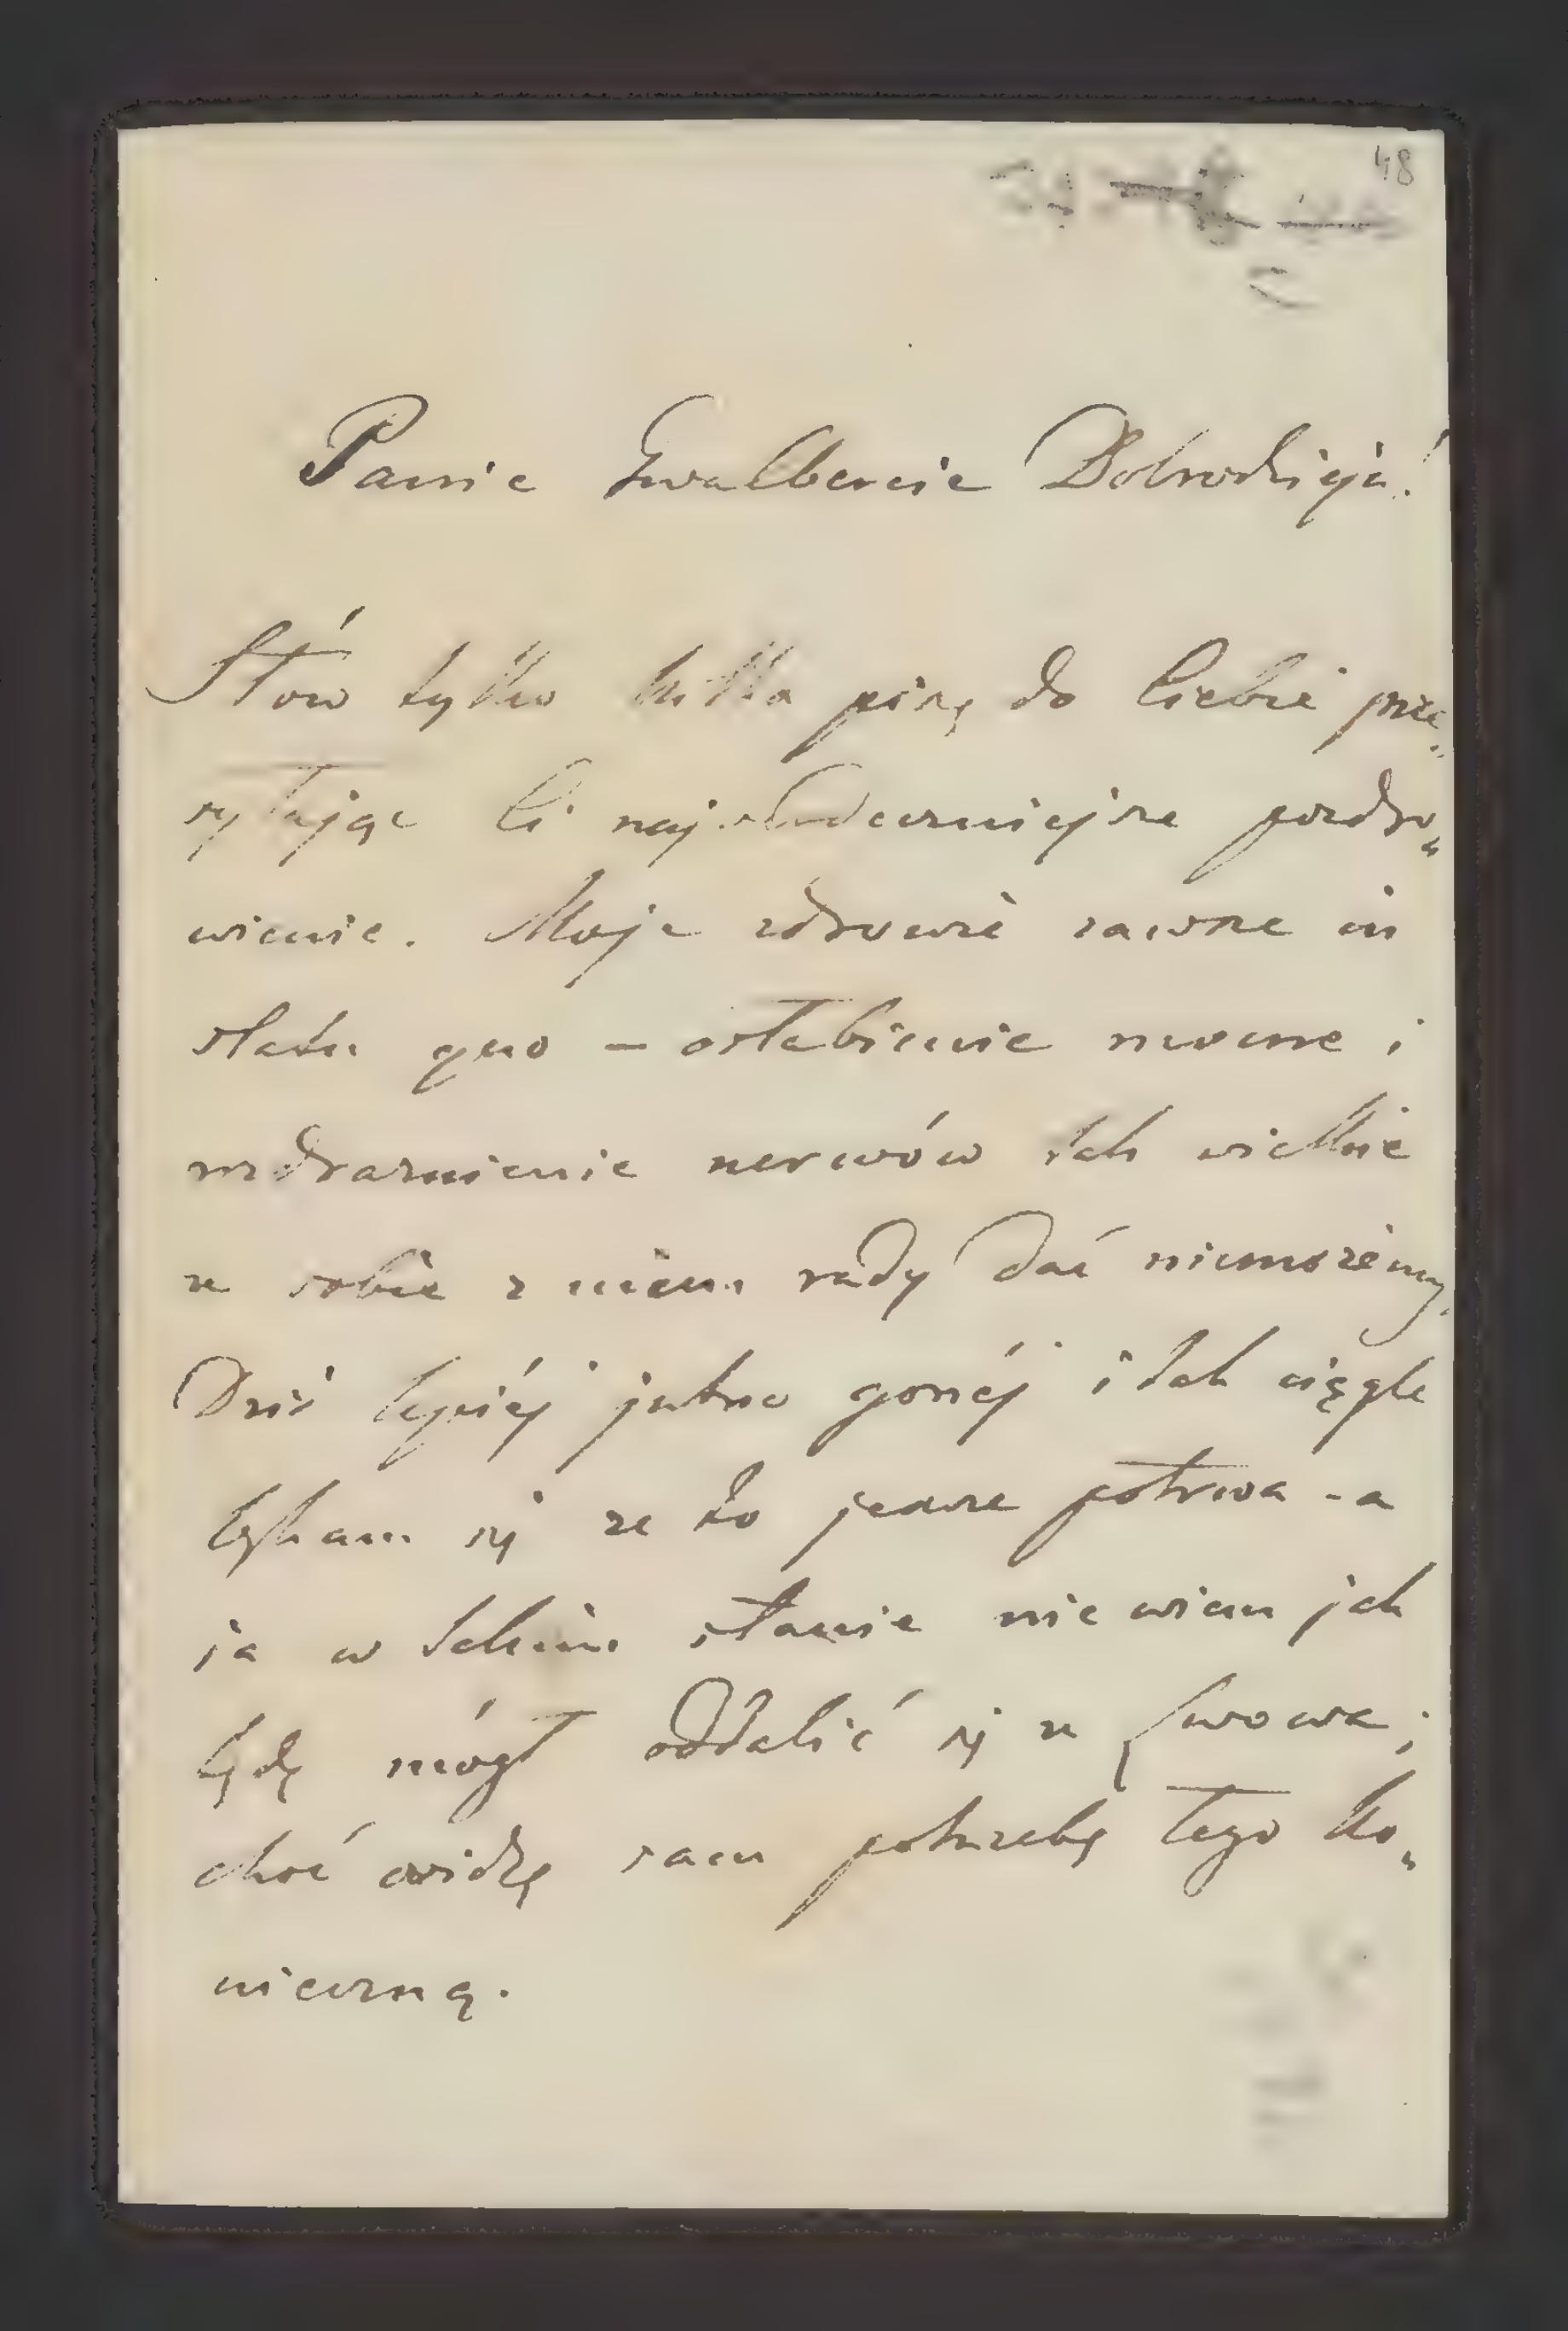 48
Panie Gwalbercie Dobrodzieju!
Słów tylko kilka piszę do Ciebie prze„
syłając Ci najserdeczniejsze pozdro„
wienie. Moje zdrowie zawsze in
statu quo – osłabienie mocne i
rozdraznienie nerwów tak wielkie
ze sobie z niem rady dać niemożemy.
Dziś lepiéj jutro gorzéj i tak ciągle
lękam się ze to jeszcze potrwa - a
ja w takim stanie nie wiem jak
będę mógł oddalić się ze Lwowa;
choć widzę sam potrzebę tego ko„
nieczną.